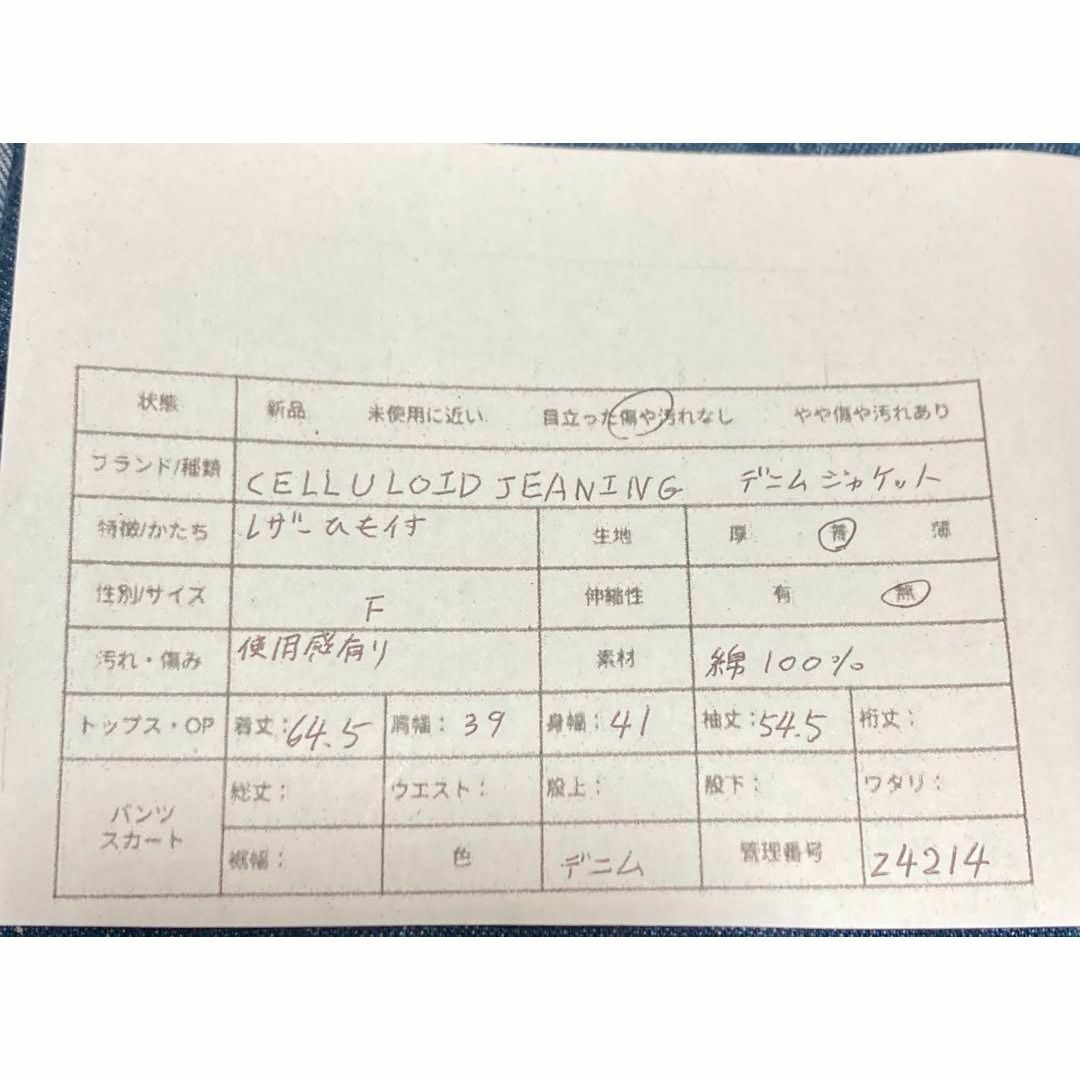 状態 新品 未使用に近い 目立った傷や汚れなし やや傷や汚れあり
ブランド/種類 CELLULOID JEANING デニムジャケット
特徴/かたち レザーひも付 生地 厚 普 薄
性別/サイズ F 伸縮性 有 無
汚れ・傷み 使用感有り 素材 綿100%
トップス・OP 着丈:64.5 肩幅:39 身幅:41 袖丈:54.5 裄丈:
パンツ
スカート
総丈: ウエスト:股上: 股下: ワタリ:
裾幅: 色 デニム 管理番号 Z4214